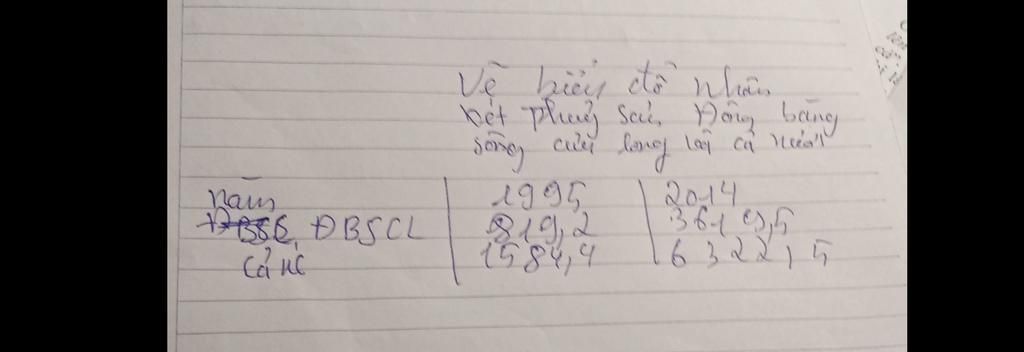 Vẽ biểu đồ nhận
xét thủy sản Đồng bằng
sông cửu long và cả nước
năm 1995 2014
ĐBSCL 819,2 3619,5
Cả nc 1584,4 6322,5